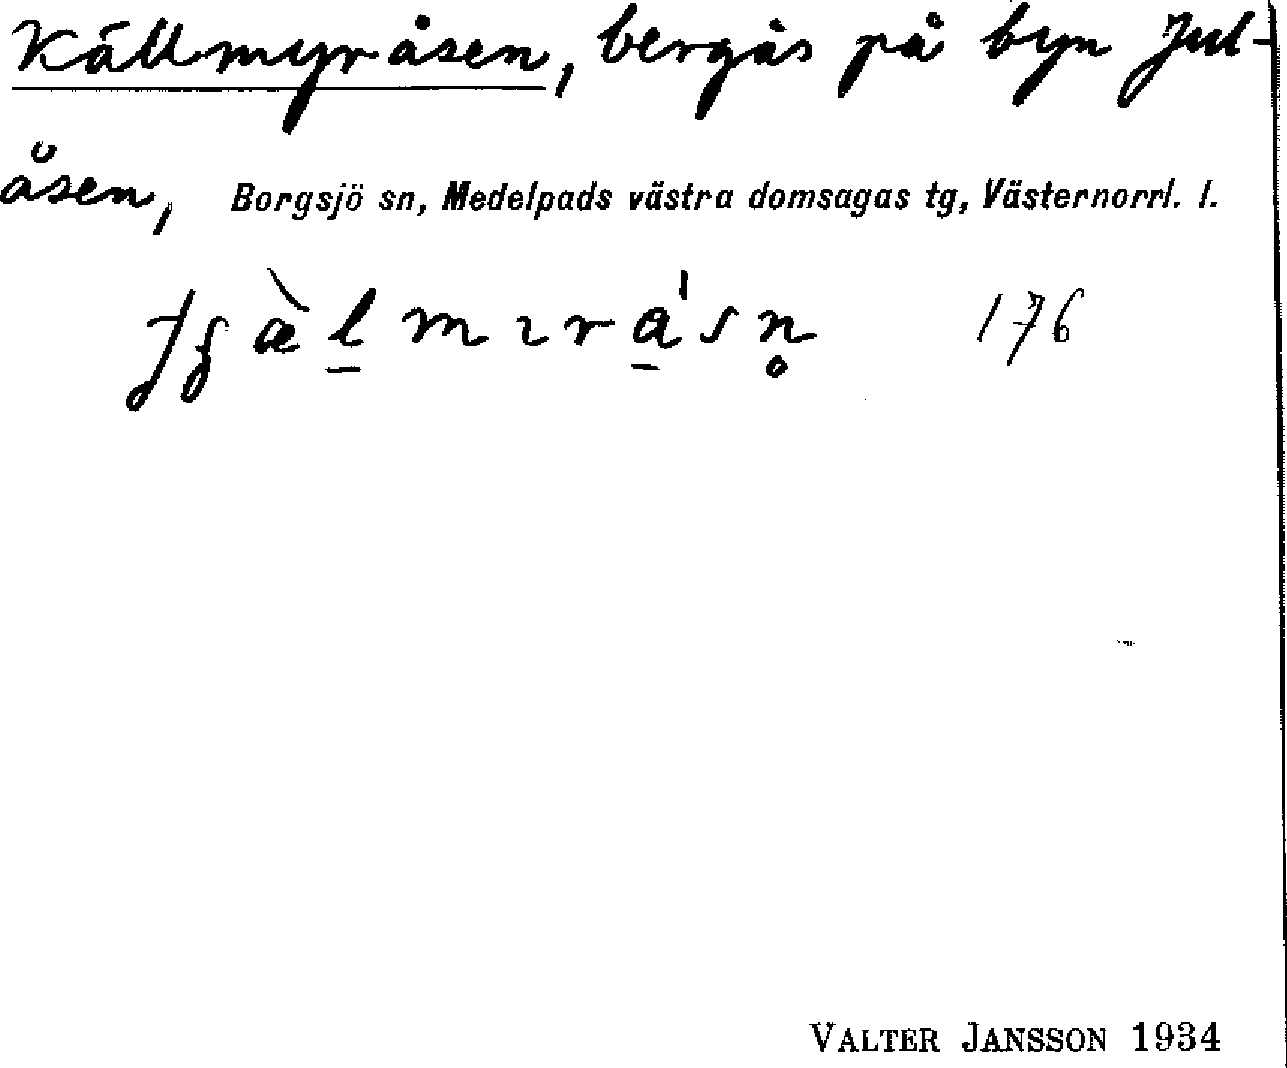 Källmyråsen, bergås på byn Jul-
åsen, Borgsjö sn, Medelpads västra domsagas tg, Västernorrl. l.
176
VALTER JANSSON 1934